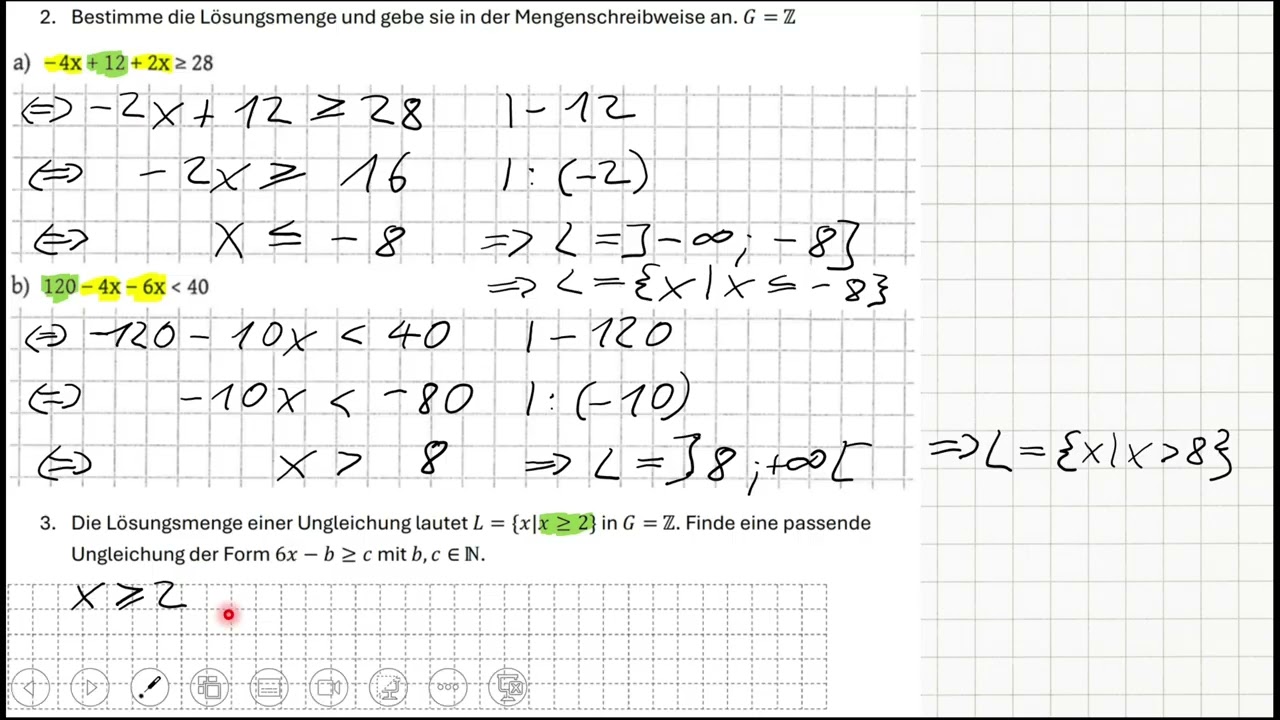 2. Bestimme die Lösungsmenge und gebe sie in der Mengenschreibweise an. G = ℤ
a) −4x + 12 + 2x ≥ 28
⇔ −2x + 12 ≥ 28 | − 12
⇔ −2x ≥ 16 | : (−2)
⇔ x ≤ −8 ⇒ L = ]−∞; −8]
⇒ L = {x | x ≤ −8}
b) 120 − 4x − 6x < 40
⇔ 120 − 10x < 40 | − 120
⇔ −10x < −80 | : (−10)
⇔ x > 8 ⇒ L = ]8; +∞[ ⇒ L = {x | x > 8}
3. Die Lösungsmenge einer Ungleichung lautet L = {x|x ≥ 2} in G = ℤ. Finde eine passende
Ungleichung der Form 6x − b ≥ c mit b, c ∈ ℕ.
x ≥ 2